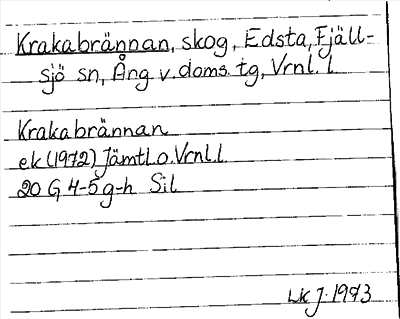 Krakabrännan, skog, Edsta, Fjäll-
sjö sn, Ång. v. doms. tg, Vrnl. l.
Krakabrännan
ek (1972) Jämtl. o. Vrnl. l.
20 G 4-5 g-h Sil
LK J. 1973